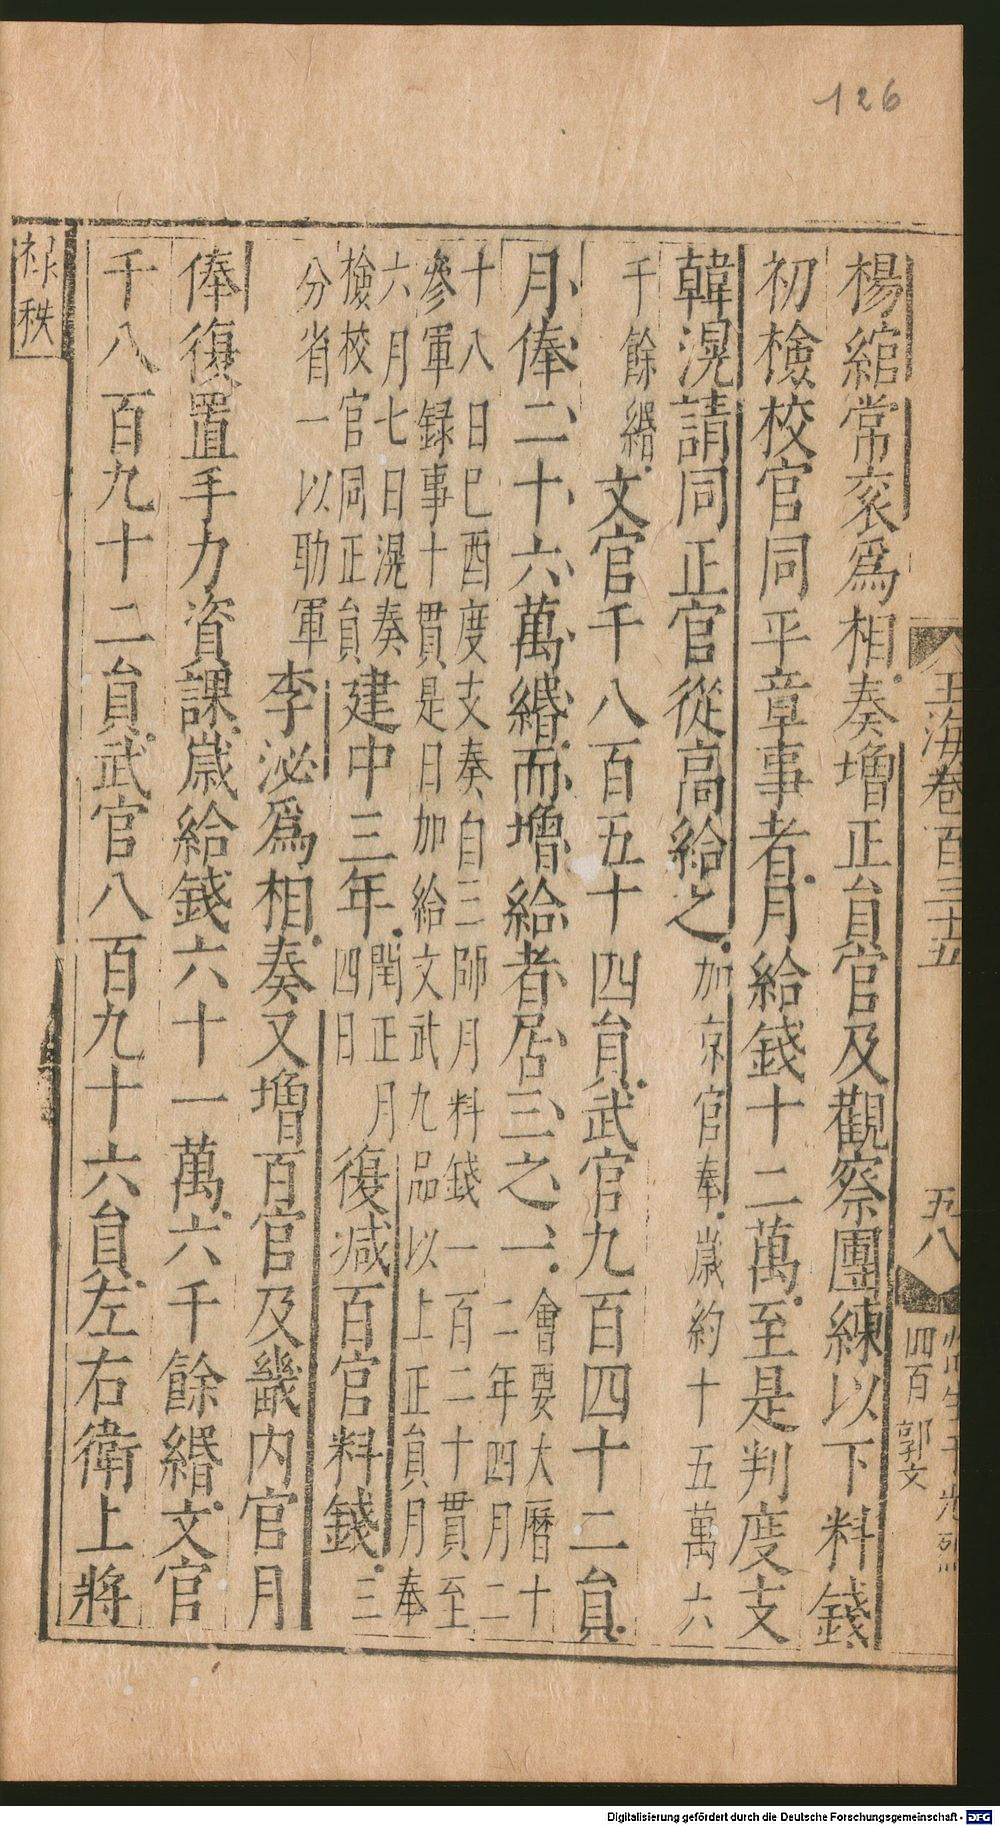 126
玉海卷百三十五
五八
四百郭文
楊綰常衮爲相奏增正貟官及觀察團練以下料錢
初檢校官同平章事者月給錢十二萬至是判度支
韓滉請同正官從高給之加京官奉歲約十五萬六
千餘緡文官千八百五十四貟武官九百四十二貟
月俸二十六萬緡而增給者居三之一會要大曆十
二年四月二
十八日巳酉度支奏自三師月料錢一百二十貫至
參軍録事十貫是日加給文武九品以上正貟月奉
六月七日滉奏
檢校官同正貟
建中三年閏正月
四日
復减百官料錢三
分省一以助軍李泌爲相奏又增百官及畿内官月
俸復置手力資課歲給錢六十一萬六千餘緡文官
千八百九十二貟武官八百九十六貟左右衛上將
禄秩
Digitalisierung gefördert durch die Deutsche Forschungsgemeinschaft - DFG